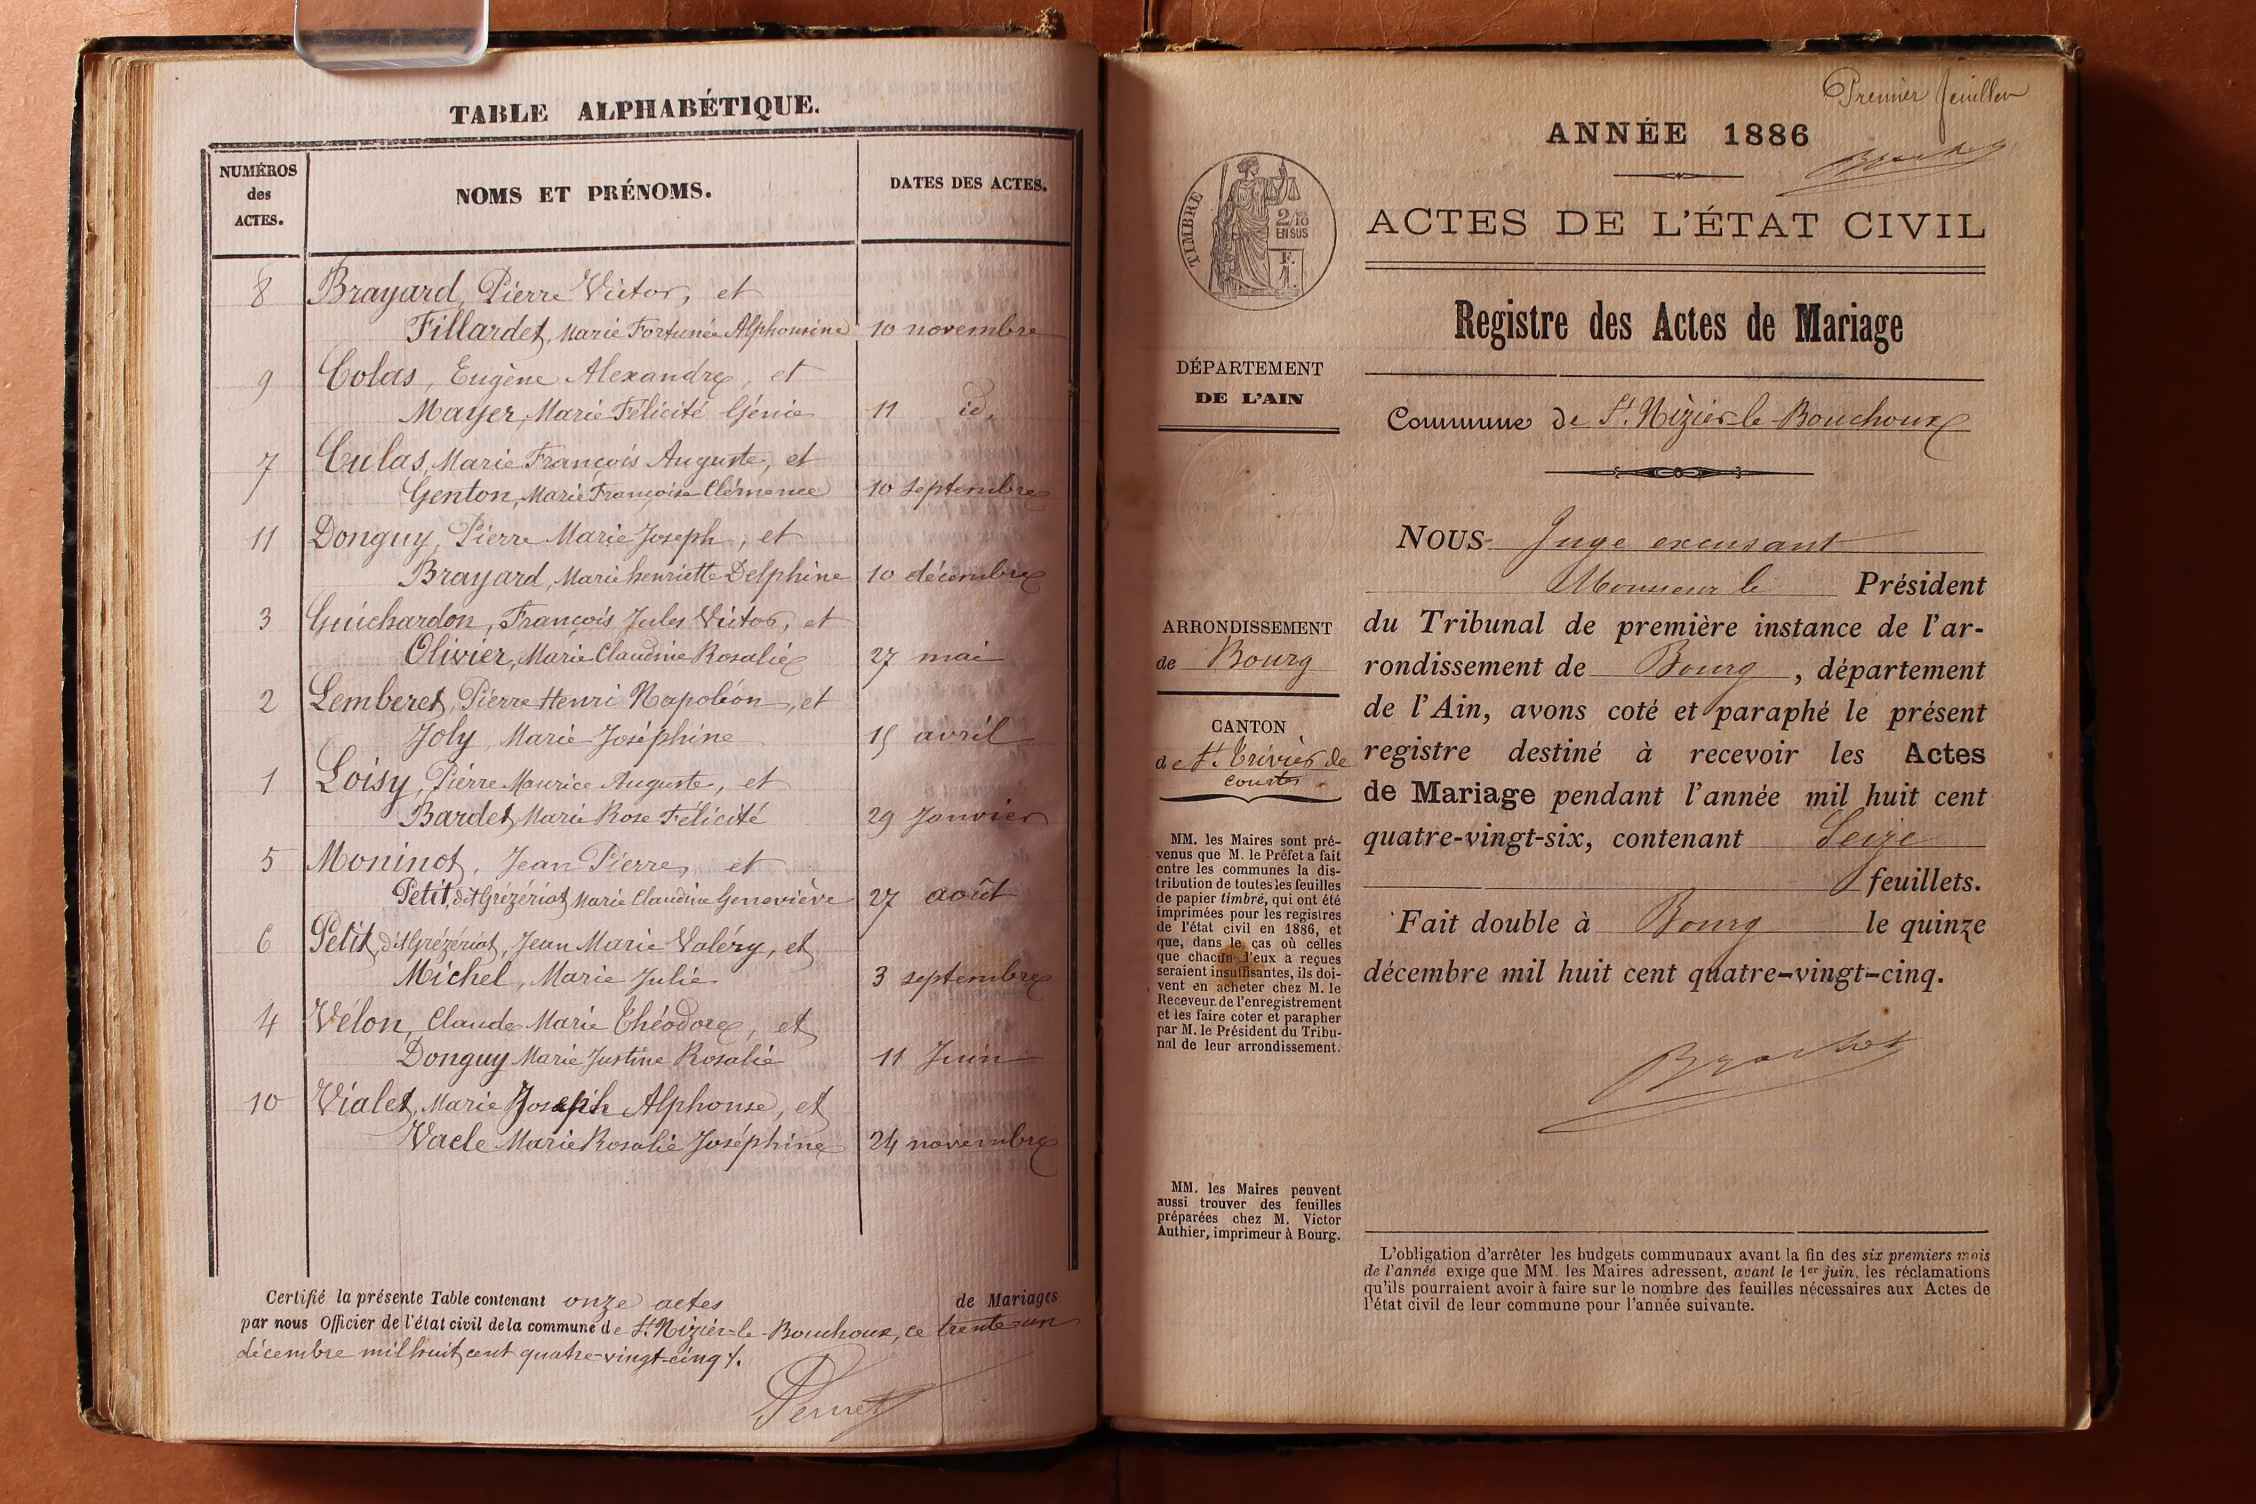 TABLE ALPHABÉTIQUE.
NUMÉROS
des
ACTES.
NOMS ET PRÉNOMS.
DATES DES ACTES.
8 Brayard, Pierre Victor, et
Fillardet, Marie Fortunée Alphonsine 10 novembre
9 Colas, Eugène Alexandre, et
Mayer, Marie Félicité Génie 11 id.
7 Culas, Marie François Auguste, et
Genton, Marie Françoise Clémence 10 septembre
11 Donguy, Pierre Marie Joseph, et
Brayard, Marie henriette Delphine 10 décembre
3 Guichardon, François Jules Victor, et
Olivier, Marie Claudine Rosalie 27 mai
2 Lemberet, Pierre Henri Napoléon, et
Joly, Marie Joséphine 15 avril
1 Loisy, Pierre Maurice Auguste, et
Bardet, Marie Rose Félicité 29 Janvier
5 Moninot, Jean Pierre, et
Petit, dit Grézériat, Marie Claudine Geneviève 27 août
6 Petit, dit Grézériat, Jean Marie Valéry, et
Michel, Marie Julie 3 septembre
4 Vélon, Claude Marie Théodore, et
Donguy Marie Justine Rosalie 11 Juin
10 Vialet, Marie Joseph Alphonse, et
Vacle Marie Rosalie Joséphine 24 novembre
Certifié la présente Table contenant onze actes de Mariages
par nous Officier de l'état civil de la commune de St. Nizier-le-Bouchoux, ce trente-un
décembre mil huit cent quatre-vingt-cinq /.
Pernet
Premier feuillet
ANNÉE 1886
TIMBRE
2/10
EN SUS
F.
1.
ACTES DE L'ÉTAT CIVIL
Registre des Actes de Mariage
DÉPARTEMENT
DE L'AIN
Commune de St. Nizier-le-Bouchoux
ARRONDISSEMENT
de Bourg
CANTON
de St. Trivier de
Courtes
MM. les Maires sont pré-
venus que M. le Préfet a fait
entre les communes la dis-
tribution de toutes les feuilles
de papier timbré, qui ont été
imprimées pour les registres
de l'état civil en 1886, et
que, dans le cas où celles
que chacun d'eux a reçues
seraient insuffisantes, ils doi-
vent en acheter chez M. le
Receveur de l'enregistrement
et les faire coter et parapher
par M. le Président du Tribu-
nal de leur arrondissement.
MM. les Maires peuvent
aussi trouver des feuilles
préparées chez M. Victor
Authier, imprimeur à Bourg.
NOUS Juge excusant
Monsieur le Président
du Tribunal de première instance de l'ar-
rondissement de Bourg, département
de l'Ain, avons coté et paraphé le présent
registre destiné à recevoir les Actes
de Mariage pendant l'année mil huit cent
quatre-vingt-six, contenant Seize
feuillets.
Fait double à Bourg le quinze
décembre mil huit cent quatre-vingt-cinq.
L'obligation d'arrêter les budgets communaux avant la fin des six premiers mois
de l'année exige que MM. les Maires adressent, avant le 1er juin, les réclamations
qu'ils pourraient avoir à faire sur le nombre des feuilles nécessaires aux Actes de
l'état civil de leur commune pour l'année suivante.